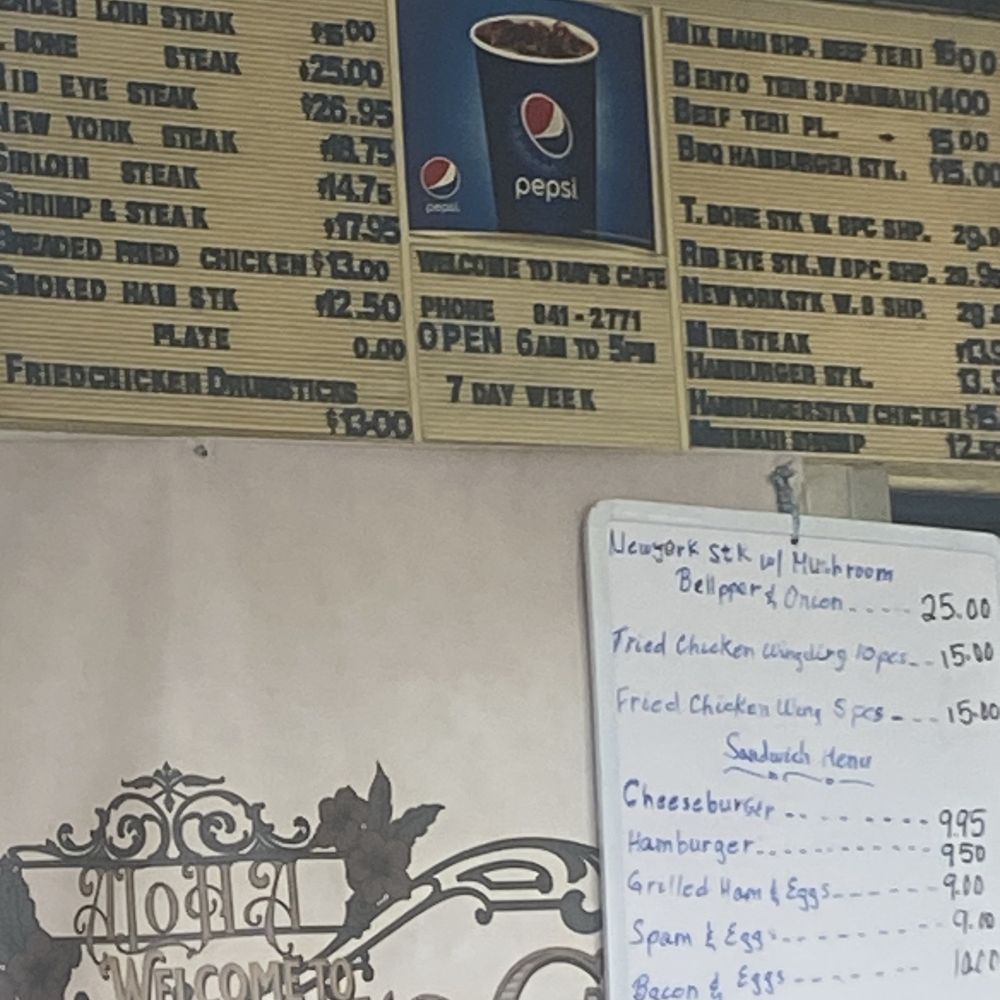 LOIN STEAK
BONE STEAK $25.00
RIB EYE STEAK $26.95
NEW YORK STEAK $18.75
SIRLOIN STEAK $14.75
SHRIMP & STEAK $17.95
BREADED FRIED CHICKEN $13.00
SMOKED HAM STK $12.50
PLATE 0.00
FRIEDCHICKEN DRUMSTICKS
$13.00
pepsi
pepsi
WELCOME TO RAY'S CAFE
PHONE 841-2771
OPEN 6AM TO 5PM
7 DAY WEEK
MIX MAHI SHP. BEEF TERI 1500
BENTO TERI SPAM MAHI 1400
BEEF TERI PL. - 15.00
BBQ HAMBURGER STK. $15.00
T.BONE STK W. 8PC SHP. 29.
RIB EYE STK.W 8PC SHP. 29.9
NEWYORKSTK W.8 SHP.
MINI STEAK
HAMBURGER STK. 13.
HAMBURGERSTKW CHICKEN
SHRIMP 12.50
Newyork Stk w/ Mushroom
Bellpper & Onion..... 25.00
Fried Chicken Wingding 10pcs... 15.00
Fried Chicken Wing 5 pcs.... 15.00
Sandwich Menu
Cheeseburger ......... 9.95
Hamburger............ 950
Grilled Ham & Eggs....... 9.00
Spam & Eggs........... 9.00
Bacon & Eggs
ALOHA
WELCOME TO